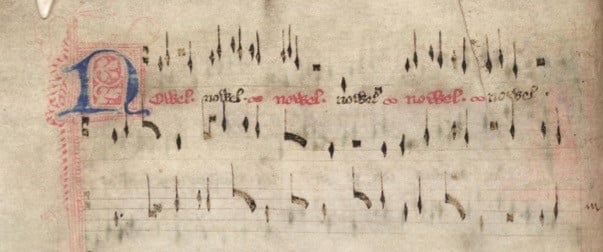 Nowel. nowel nowel. nowel nowel. nowel